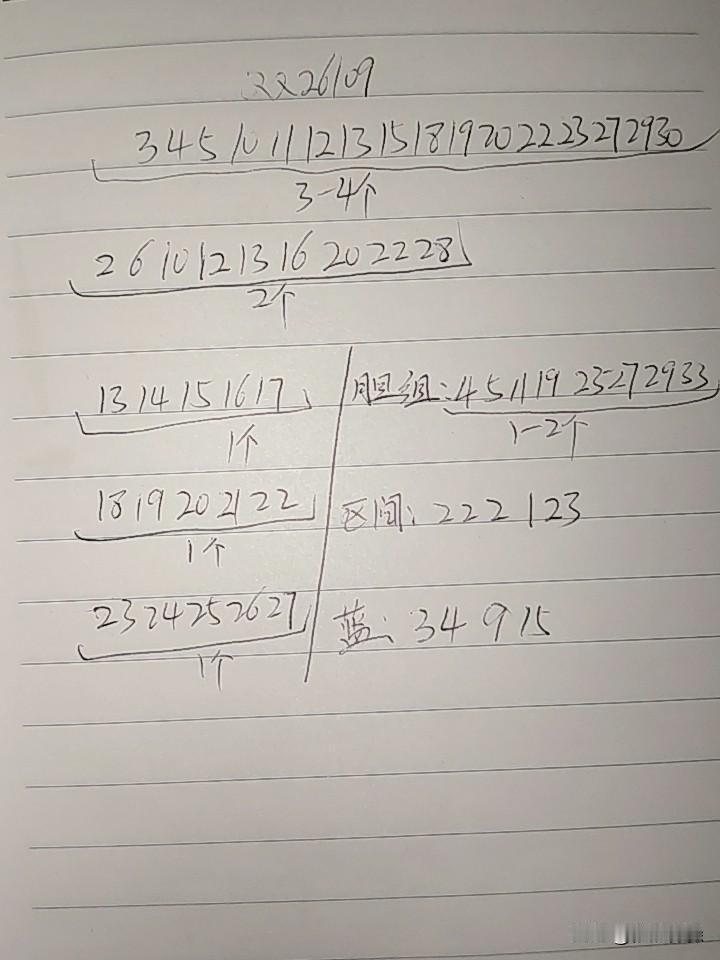 双26109
3 4 5 10 11 12 13 15 18 19 20 22 23 27 29 30
3-4个
2 6 10 12 13 16 20 22 28
2个
13 14 15 16 17
1个
18 19 20 21 22
1个
23 24 25 26 27
1个
胆组:4 5 11 19 23 27 29 33
1-2个
区间:222 123
蓝:3 4 9 15